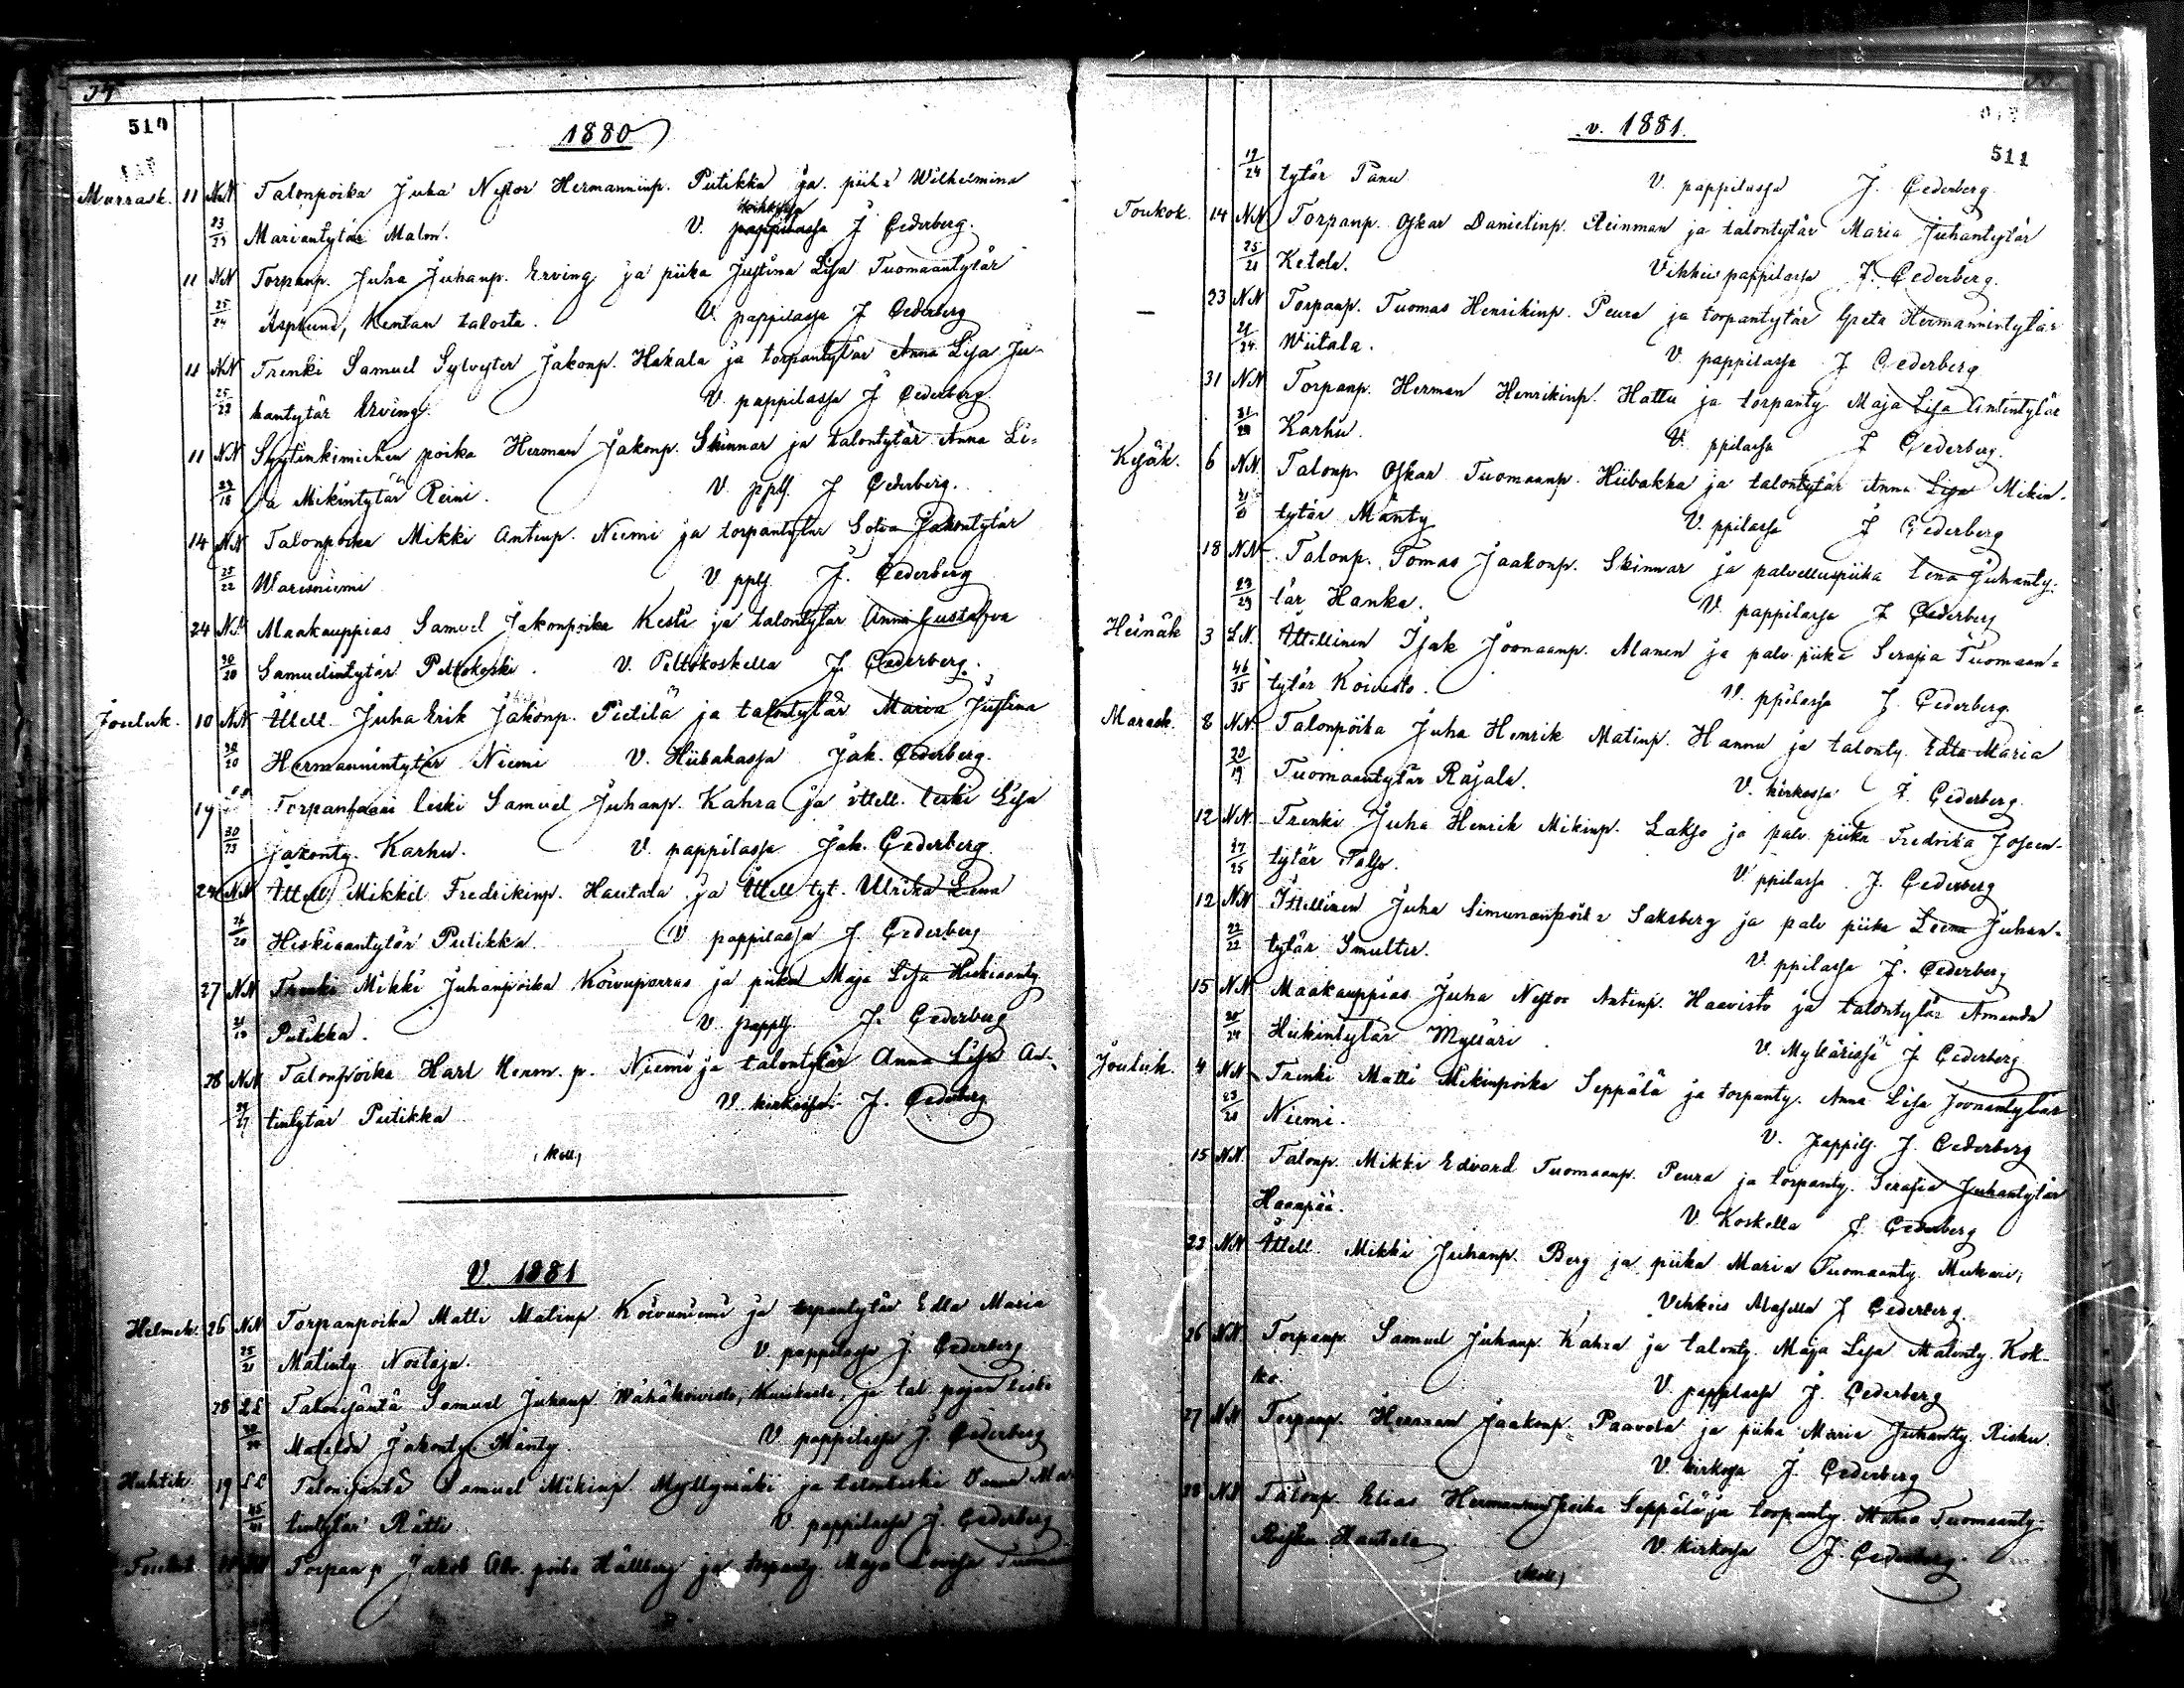 510
1880
Marrask. 11 NN Talonpoika Juha Nestor Hermanninp. Piitikka ja piika Wilhelmina
kirkossa
23/23 Mariantytär Malm. V. pappilassa J Cederberg.
11 NN Torpanp. Juha Juhanp. Erving ja piika Justina Lisa Tuomaantytär
25/24 Asplund, Kentan talosta. V. pappilassa J Cederberg
11 NN Trenki Samuel Sylvester Jakonp. Hakala ja torpantytär Anna Lisa Ju-
25/23 hantytär Erving. V. pappilassa J Cederberg.
11 NN Syytinkimiehen poika Herman Jakonp. Skinnar ja talontytär Anna Li=
sa Mikintytär Reini. V. ppls. J Cederberg.
14 NN Talonpoika Mikki Antinp. Niemi ja torpantytär Sofia Jakontytär
25/22 Warisniemi V ppls J. Cederberg
24 NN Maakauppias Samuel Jakonpoika Kesti ja talontytär Anna Gustafva
30/20 Samuelintytär Peltokoski. V. Peltokoskella J. Cederberg.
Jouluk. 10 NN Ittell. Juha Erik Jakonp. Pietilä ja talontytär Maria Justina
30/20 Hermannintytär Niemi V. Hiibakassa Jak. Cederberg.
19 Torpanpoian leski Samuel Juhanp. Kahra ja ittell. leski Lisa
30/33 Jakonty. Karhu. V. pappilassa Jak. Cederberg.
24 NN Ittell. Mikkel Fredrikinp. Hautala ja Ittell tyt. Ulrika Lena
26/20 Hiskiaantytär Piitikka. V pappilassa J. Cederberg
27 NN Trenki Mikki Juhanpoika Koivuporras ja piika Maja Lisa Hiskiaanty.
Piitikka. V. pappls. J. Cederberg
28 NN Talonpoika Karl Herm. p. Niemi ja talontytär Anna Lisa An-
tintytär Piitikka V. kirkossa J. Cederberg
V. 1881
Helmik. 26 NN Torpanpoika Matti Matinp. Koivuniemi ja torpantytär Edla Maria
25/21 Matinty. Nostaja. V. pappilassa J. Cederberg
28 LL Talonisäntä Samuel Juhanp. Wähäkoivisto, ja tal. pojan leski
Matilda Jakonty. Mänty. V. pappilassa J. Cederberg
Huhtik. 19 LL Talonisäntä Samuel Mikinp. Myllymäki ja talonleski Sanna Ma-
tintytär Rätti V. pappilassa J. Cederberg
Toukok. NN Torpan p. Jakob Abr. poika Hällberg ja torpanty. Maja Lovisa Tuomaan
v. 1881.
511
19/24 tytär Panu V. pappilassa J. Cederberg.
Toukok. 14 NN Torpanp. Oskar Danielinp. Reinman ja talontytär Maria Juhantytär
25/21 Ketola. Vihkiv pappilassa J. Cederberg.
— 23 NN Torpanp. Tuomas Henrikinp. Peura ja torpantytär Greta Hermannintytär
Wiitala. V. pappilassa J Cederberg
31 NN Torpanp. Herman Henrikinp. Hattu ja torpanty Maja Lisa Antintytär
Karhu. V. ppilassa J Cederberg.
Kesäk. 6 NN. Talonp. Oskar Tuomaanp. Hiibakka ja talontytär Anna Lisa Mikin-
tytär Mänty V. ppilassa J Cederberg
18 NN Talonp. Tomas Jaakonp. Skinnar ja palvelluspiika Lena Juhanty-
23/29 tär Hanka. V. pappilassa J Cederberg
Heinäk 3 LN. Ittellinen Isak Joonaanp. Alanen ja palv. piika Serafia Tuomaan=
46/35 tytär Koivisto. V. ppilassa J. Cederberg.
Marask. 8 NN. Talonpoika Juha Henrik Matinp. Hannu ja talonty. Edla Maria
20/19 Tuomaantytär Rajala. V. kirkossa J. Cederberg.
12 NN. Trenki Juha Henrik Mikinp. Lakso ja palv. piika Fredrika Joseen-
27/25 tytär Palso. V ppilassa J. Cederberg
12 NN Ittellinen Juha Simunanpoika Saksberg ja palv piika Leena Juhan-
22/22 tytär Smulter. V. ppilassa J. Cederberg
15 NN Maakauppias Juha Nestor Antinp. Haavisto ja talontytär Amanda
Hiskintytär Mylläri. V. Myllärissä J Cederberg
Jouluk. 4 NN Trenki Matti Mikinpoika Seppälä ja torpanty. Anna Lisa Joonaantytär
23/20 Niemi. V. pappils. J. Cederberg
15 NN. Talonp. Mikki Edvard Tuomaanp. Peura ja torpanty. Serafia Juhantytär
Haanpää. V. Koskella J. Cederberg
23 NN Ittell. Mikki Juhanp. Berg ja piika Maria Tuomaanty.
J Cederberg.
26 NN. Torpanp. Samuel Juhanp. Kahra ja talonty. Maja Lisa Matinty. Kok-
ko. V. pappilassa J. Cederberg
27 NN Torpanp. Herman Jaakonp. Paavola ja piika Maria Juhanty. Risku.
V. kirkossa J. Cederberg
28 NN Talonp. Elias Hermanninpoika Seppälä ja torpanty. Maria Tuomaanty-
Hautala V. kirkossa J. Cederberg.